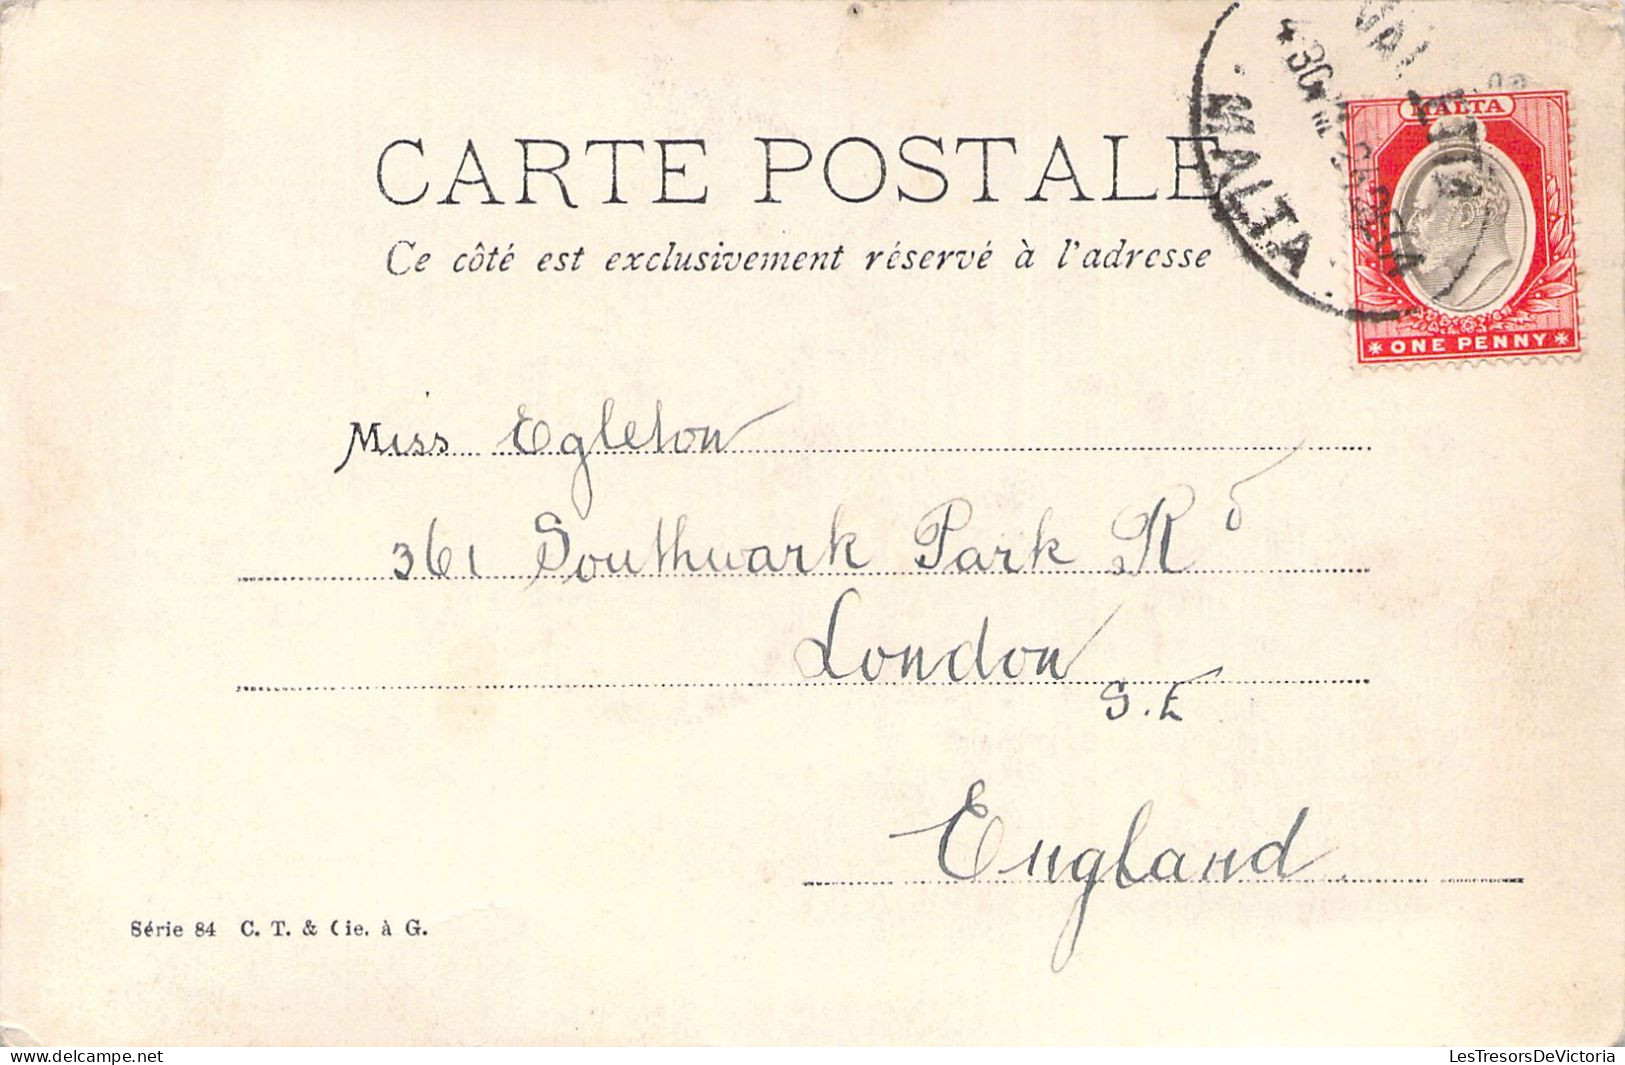 CARTE POSTALE
Ce côté est exclusivement réservé à l'adresse
MALTA
MALTA
ONE PENNY
Miss Egleton
361 Southwark Park Rd
London
S.E
England
Série 84 C. T. & Cie. à G.
delcampe.net
LesTresorsDeVictoria